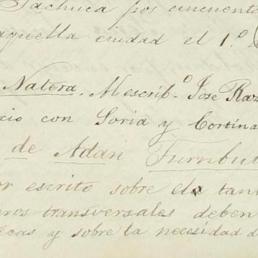 Pachuca por cincuenta
aquella ciudad el 1.º
Natera. Al escrib.º José
cio con Soria y Cortina
de Adan Turnbu
or escrito sobre el tan
ros transversales deben
ecas y sobre la necesidad d